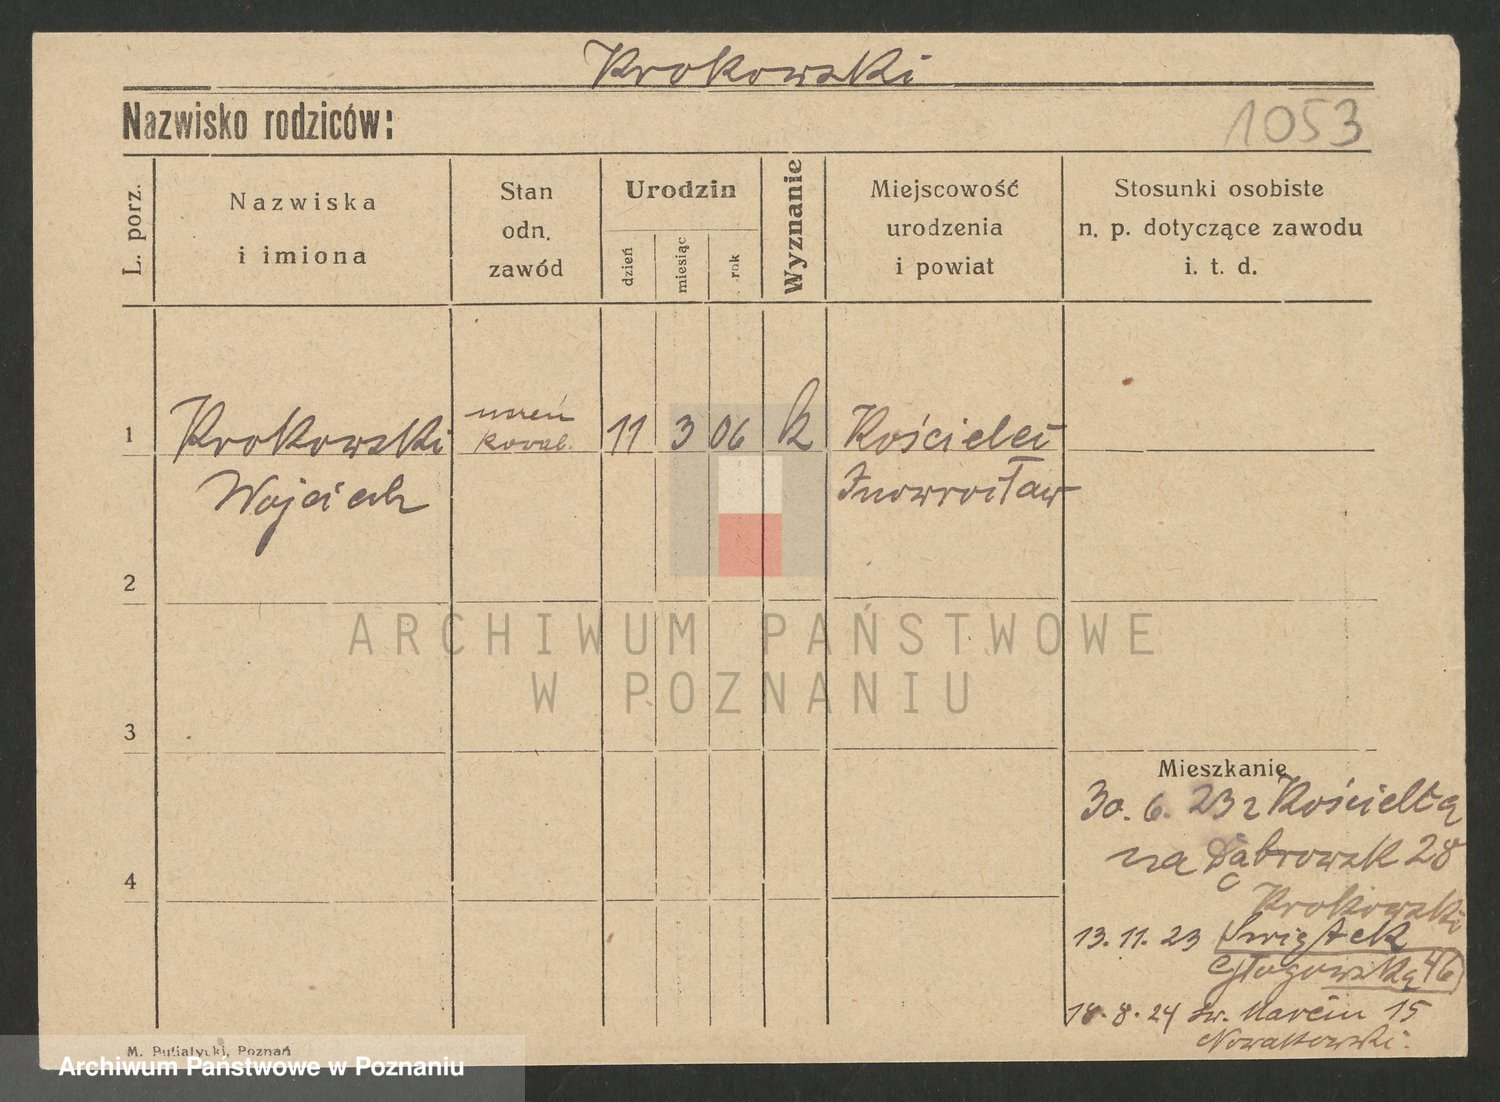 Krokowski
Nazwisko rodziców:
1053
L. porz.
Nazwiska
i imiona
Stan
odn.
zawód
Urodzin
dzień
miesiąc
rok
Wyznanie
Miejscowość
urodzenia
i powiat
Stosunki osobiste
n. p. dotyczące zawodu
i. t. d.
1
Krokowski
Wojciech
uczeń
11
3
06
k
Kościelec
Inowrocław
2
3
4
ARCHIWUM PAŃSTWOWE
W POZNANIU
Mieszkanie
30. 6. 23 z Kościelca
na Dąbrowsk 28
Krokowski
13. 11. 23 Świątek
Głogowska 46
18. 8. 24 św. Marcin 15
Nowakowski.
M. Putiatycki, Poznań
Archiwum Państwowe w Poznaniu